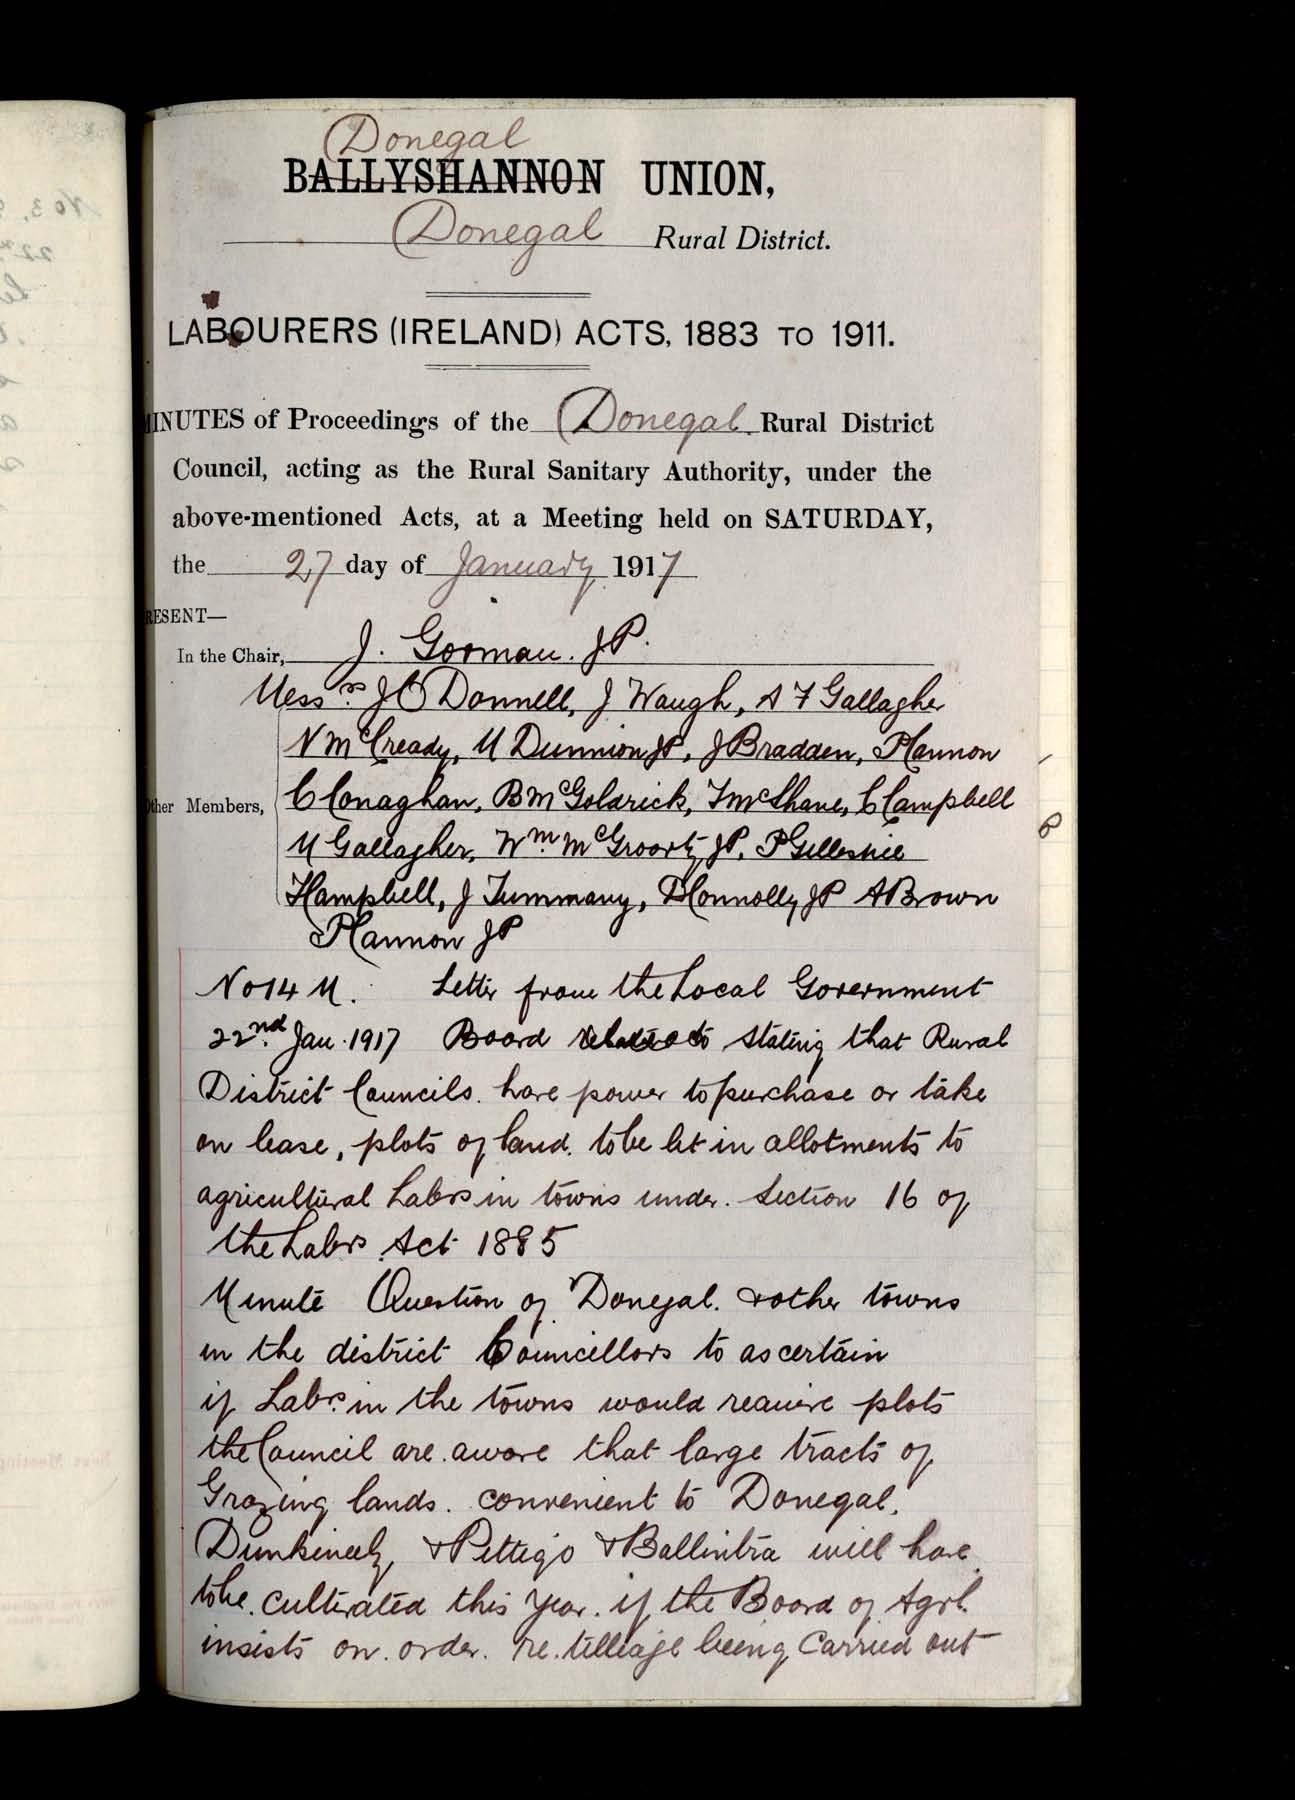 Donegal
BALLYSHANNON UNION,
Donegal Rural District.
LABOURERS (IRELAND) ACTS, 1883 TO 1911.
MINUTES of Proceedings of the Donegal Rural District
Council, acting as the Rural Sanitary Authority, under the
above-mentioned Acts, at a Meeting held on SATURDAY,
the 27 day of January 1917
RESENT—
In the Chair, J. Gorman. JP.
Messrs. J O Donnell, J Waugh, A F Gallagher
N McCready, M Dunnion JP, J Bradden, P Hannon
Other Members, C Conaghan, B McGoldrick, T McShane, C Campbell
M Gallagher, Wm. McGroarty JP, P Gillespie
T Campbell, J Tummany, D Connolly JP A Brown
P Hannon JP
No 14 M. Letter from the Local Government
22nd Jan. 1917 Board relative to stating that Rural
District Councils. have power to purchase or take
on lease, plots of land. to be let in allotments to
agricultural Labrs in towns under. Section 16 of
the Labrs Act 1885
Minute Question of Donegal. & other towns
in the district Councillors to ascertain
if Labrs. in the towns would require plots
the Council are aware that large tracts of
Grazing lands. convenient to Donegal,
Dunkineely, & Pettigo & Ballintra will have
to be. cultivated this year. if the Board of Agrl.
insists on. order. re. tilleage being carried out